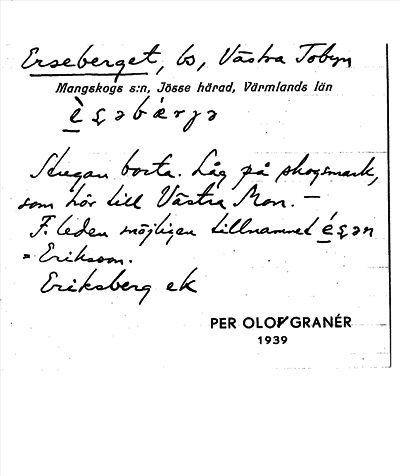 Erseberget, bs, Västra Tobyn
Mangskogs s:n, Jösse härad, Värmlands län
è ȿ ə b æ r j ə
Stugan borta. Låg på skogsmark,
som hör till Västra Mon. –
F. leden möjligen tillnamnet é ȿ ə n
= Eriksson.
Eriksberg ek
PER OLOF GRANÉR
1939